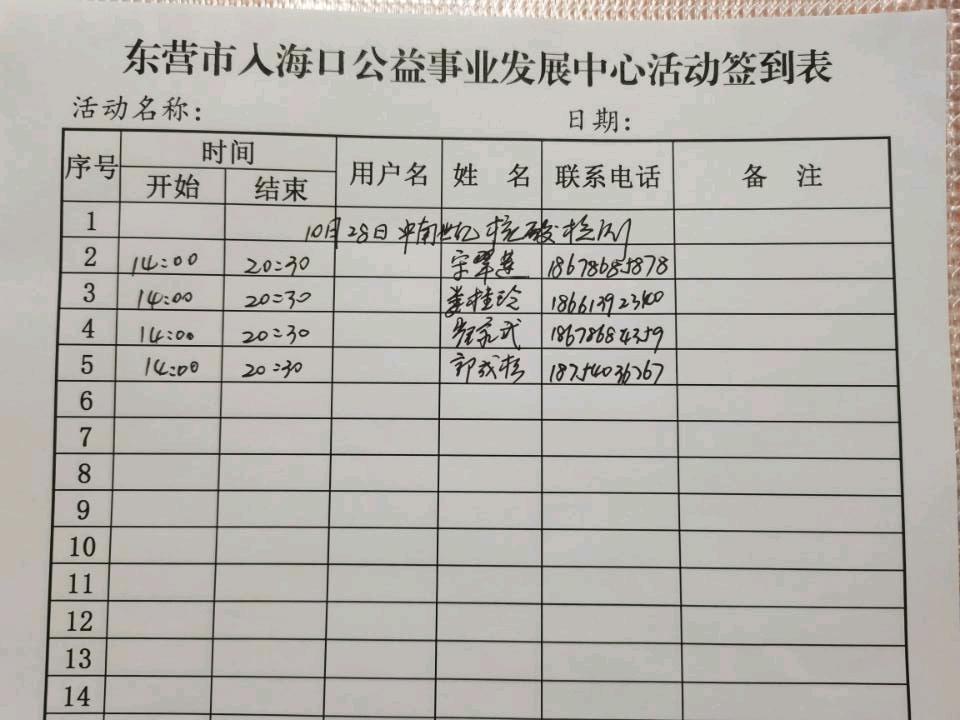 东营市入海口公益事业发展中心活动签到表
活动名称: 日期:
序号 时间 用户名 姓 名 联系电话 备 注
开始 结束
1 10月28日中南世纪核酸检测
2 14:00 20:30 宋翠莲 18678685878
3 14:00 20:30 娄桂玲 18661392340
4 14:00 20:30 18678684359
5 14:00 20:30 郭 18754036767
6
7
8
9
10
11
12
13
14